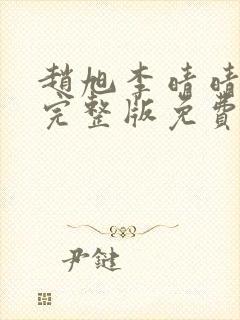 趙旭李晴晴
完整版免費
尹鍵